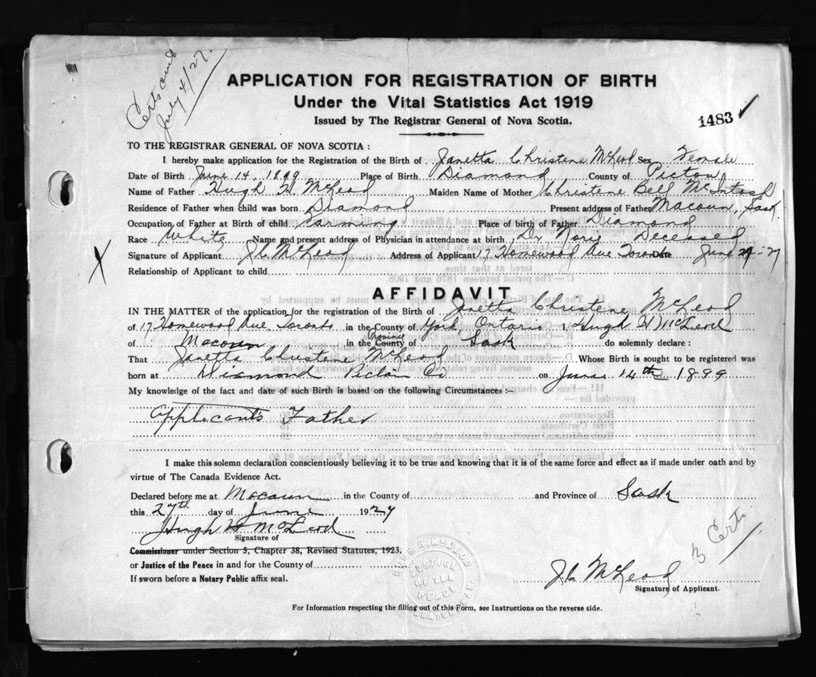 Certs and
July 4/27.
APPLICATION FOR REGISTRATION OF BIRTH
Under the Vital Statistics Act 1919
Issued by The Registrar General of Nova Scotia.
1483
TO THE REGISTRAR GENERAL OF NOVA SCOTIA :
I hereby make application for the Registration of the Birth of Janetta Christene McLeod Sex Female
Date of Birth June 14, 1899 Place of Birth Diamond County of Pictou
Name of Father Hugh H McLeod Maiden Name of Mother Christene Bell McIntosh
Residence of Father when child was born Diamond Present address of Father Macoun, Sask.
Occupation of Father at Birth of child Farming Place of birth of Father Diamond
Race White Name and present address of Physician in attendance at birth Dr. Deceased
Signature of Applicant J C McLeod Address of Applicant 17 Homewood Ave Toronto Date June -27
Relationship of Applicant to child
X
AFFIDAVIT
IN THE MATTER of the application for the registration of the Birth of Janetta Christene McLeod
of 17 Homewood Ave. Toronto in the County of York, Ontario I Hugh H McLeod
of Macoun in the County Province of Sask do solemnly declare :
That Janetta Christene McLeod Whose Birth is sought to be registered was
born at Diamond Pictou Co on June 14th 1899
My knowledge of the fact and date of such Birth is based on the following Circumstances :-
Applicants Father
I make this solemn declaration conscientiously believing it to be true and knowing that it is of the same force and effect as if made under oath and by
virtue of The Canada Evidence Act.
Declared before me at Macoun in the County of and Province of Sask
this 27th day of June 1927
Hugh H McLeod
Signature of
Commissioner under Section 5, Chapter 38, Revised Statutes, 1923.
or Justice of the Peace in and for the County of
If sworn before a Notary Public affix seal.
3 Certs
J C McLeod
Signature of Applicant.
For Information respecting the filling out of this Form, see Instructions on the reverse side.